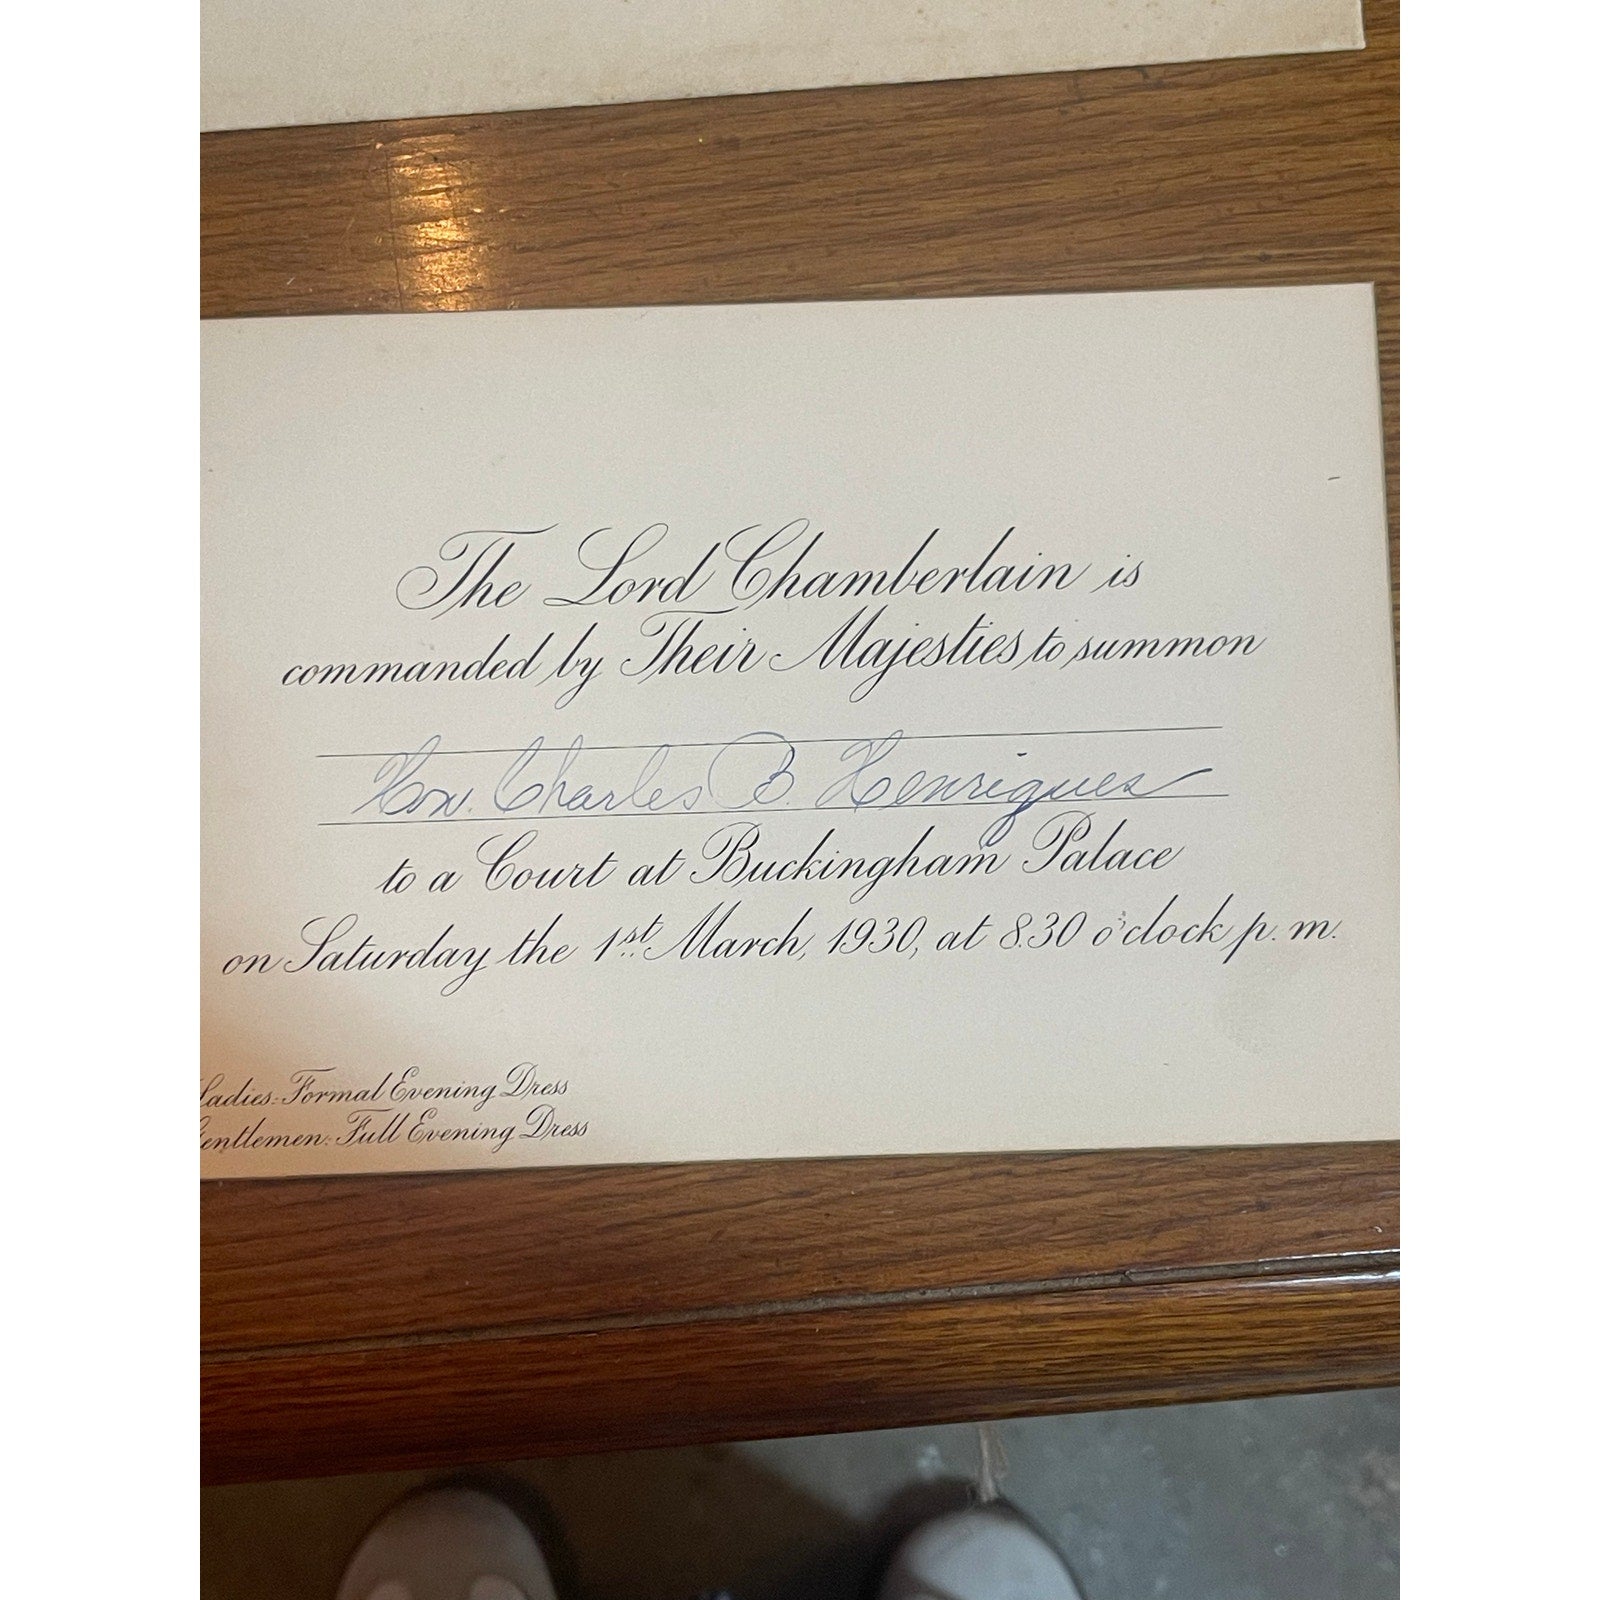 The Lord Chamberlain is
commanded by Their Majesties to summon
Hon. Charles B. Henriques
to a Court at Buckingham Palace
on Saturday the 1st March, 1930, at 8.30 o'clock p. m.
Ladies: Formal Evening Dress
Gentlemen: Full Evening Dress